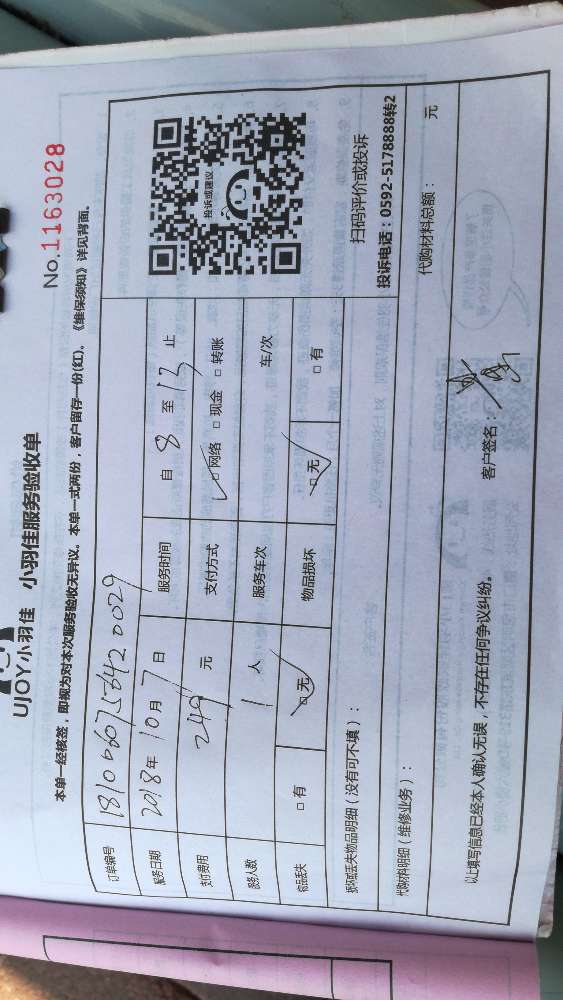 UJOY小羽佳 小羽佳服务验收单
No.1163028
本单一经核签，即视为对本次服务验收无异议。本单一式两份，客户留存一份(红)。《维保须知》详见背面。
订单编号 1810060758420029
服务日期 2018年 10月 7日 服务时间 自 8 至 12 止
支付费用 249 元 支付方式 □网络 □现金 □转账
服务人数 1 人 服务车次 车/次
物品丢失 □有 □无 物品损坏 □无 □有
投诉或建议
扫码评价或投诉
投诉电话：0592-5178888转2
损坏或丢失物品明细（没有可不填）：
代购材料明细（维修业务）： 代购材料总额： 元
以上填写信息已经本人确认无误，不存在任何争议纠纷。 客户签名：